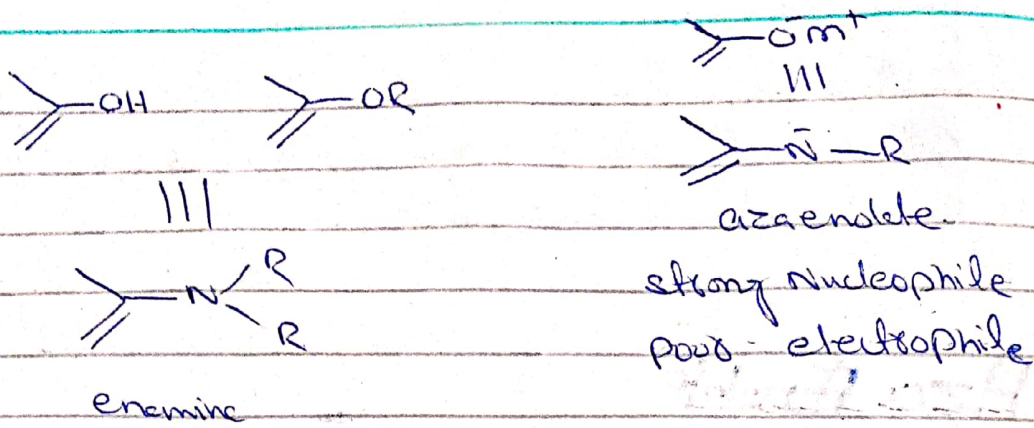 OH
OR
R
R
N
enamine
ŌM⁺
N̄ — R
azaenolate
strong Nucleophile
poor electrophile